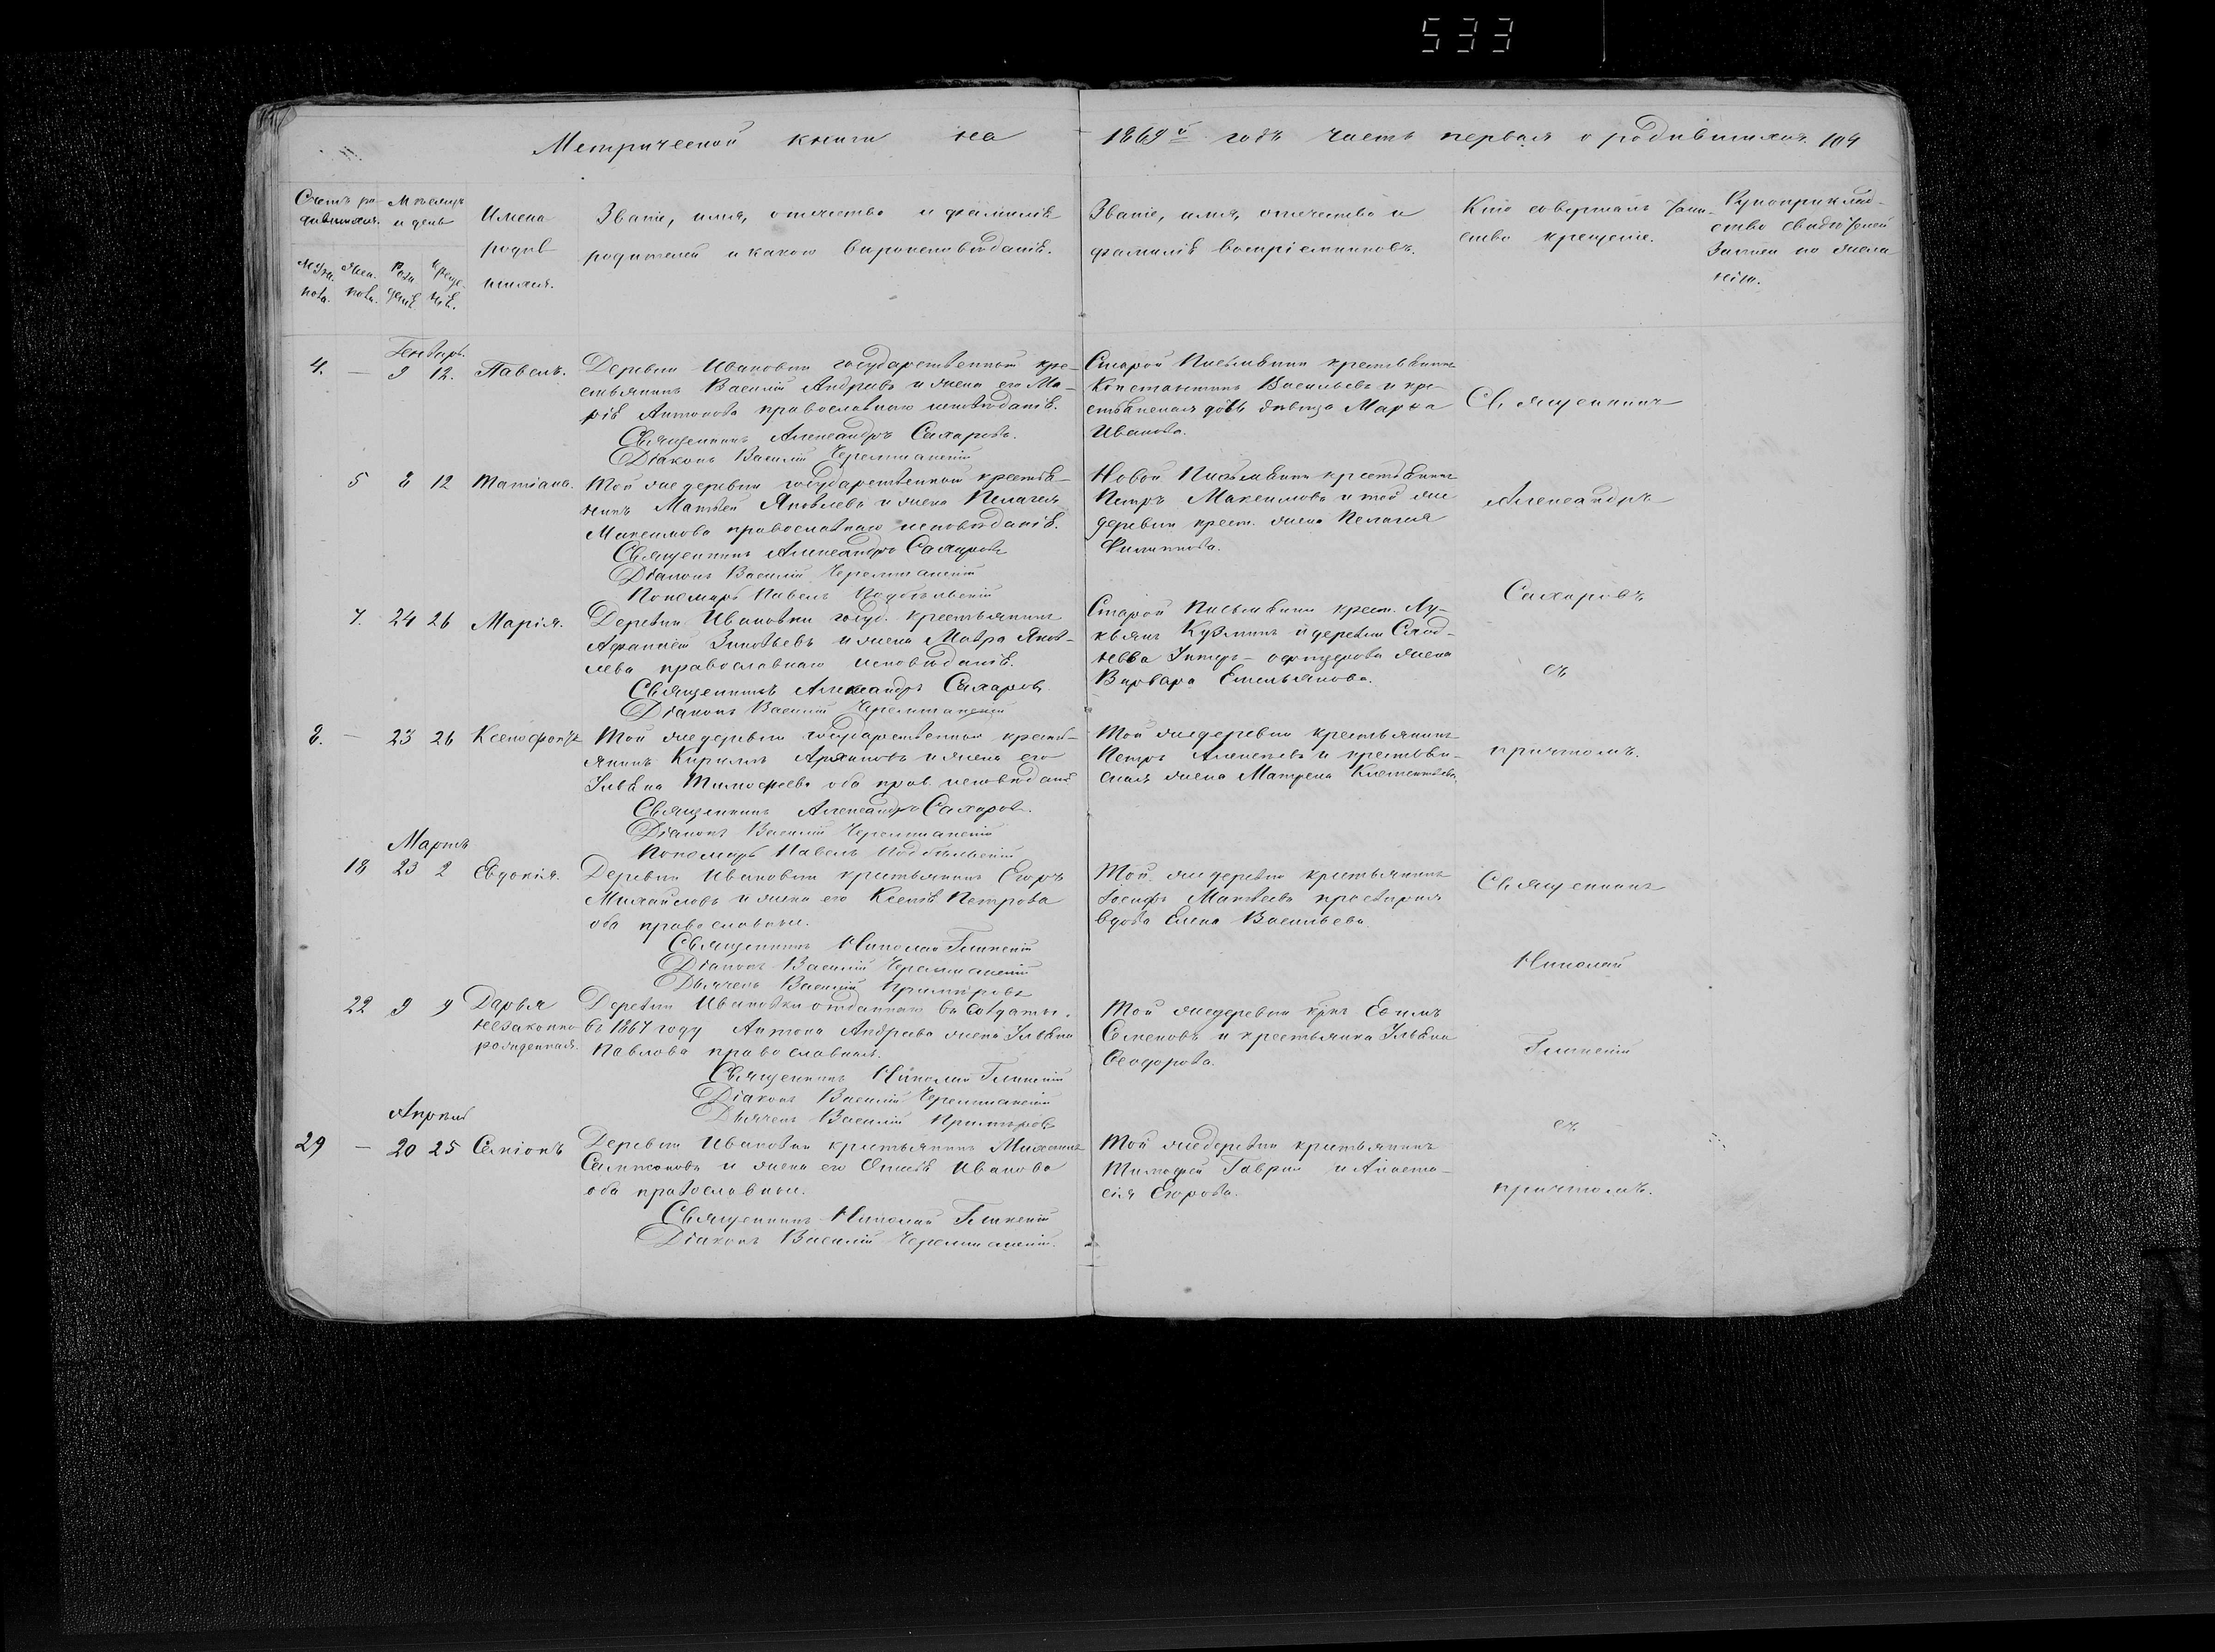 533
Метрической книги на 1869й годъ часть первая о родившихся. 104
Счетъ ро-
дившихся.
Мѣсяцъ
и день
Имена
родив
шихся.
Званіе, имя, отчество и фамилія
родителей и какого вѣроисповѣданія.
Званіе, имя, отчество и
фамилія воспріемниковъ.
Кто совершалъ таин-
ство крещенія.
Рукоприклад-
ство свидѣтелей
записи по жела
нію.
Муж.
пола.
Жен.
пола.
Рож
денія
Креще-
нія.
Генварь.
4. — 9 12. Павелъ.
Деревни Ивановки государственный кре-
стьянинъ Василій Андреевъ и жена его Ма-
рія Антонова православнаго исповѣданія.
Священникъ Александръ Сахаровъ.
Діаконъ Василій Черемшанскій
Старой Письмянки крестьянинъ
Константинъ Васильевъ и кре-
стьянская дочь дѣвица Марѳа
Иванова.
Священникъ
5 8 12 Татіана.
Той же деревни государственный крестья-
нинъ Матвей Яковлевъ и жена Пелагея
Максимова православнаго исповѣданія.
Священникъ Александръ Сахаровъ
Діаконъ Василій Черемшанскій
Пономарь Павелъ Подбѣльскій
Новой Письмянки крестьянинъ
Петръ Максимовъ и той же
деревни крест. жена Пелагея
Филиппова.
Александръ
7. 24 26 Марія.
Деревни Ивановки госуд. крестьянинъ
Афанасій Зиновьевъ и жена Мавра Яков-
лева православнаго исповѣданія.
Священникъ Александръ Сахаровъ.
Діаконъ Василій Черемшанскій
Старой Письмянки крест. Лу-
кьянъ Кузминъ и деревни
Унтеръ-офицерова жена
Варвара Емельянова.
Сахаровъ
съ
8. — 23 26 Ксенофонтъ
Той же деревни государственный кресть-
янинъ Кириллъ и жена его
Ульяна Тимофеева оба прав. исповѣданія
Священникъ Александръ Сахаровъ.
Діаконъ Василій Черемшанскій
Пономарь Павелъ Подбѣльскій
Той же деревни крестьянинъ
Петръ Алексѣевъ и крестьян-
ская жена Матрена Клементьева
причтомъ.
Мартъ
18 23 2 Евдокія.
Деревни Ивановки крестьянинъ Егоръ
Михайловъ и жена его Ксенія Петрова
оба православные.
Священникъ Николай Глинскій
Діаконъ Василій Черемшанскій
Дьячекъ Василій Примѣровъ
Той же деревни крестьянинъ
Іосифъ Матвеевъ
вдова Елена Васильева.
Священникъ
Николай
22 9 9 Дарья
незаконно
рожденная.
Деревни Ивановки отданнаго въ солдаты
въ 1867 году Антона Андреева жена Ульяна
Павлова православная.
Священникъ Николай Глинскій
Діаконъ Василій Черемшанскій
Дьячекъ Василій Примѣровъ
Той же деревни крнъ Ефимъ
Семеновъ и крестьянка Ульяна
Ѳеодорова.
Глинскій
съ
Апрель
29 — 20 25 Симіонъ
Деревни Ивановки крестьянинъ Михаилъ
и жена его Ивано ва
оба православные.
Священникъ Николай Глинскій
Діаконъ Василій Черемшанскій.
Той же деревни крестьянинъ
Тимофей и Анаста-
сія Егорова.
причтомъ.